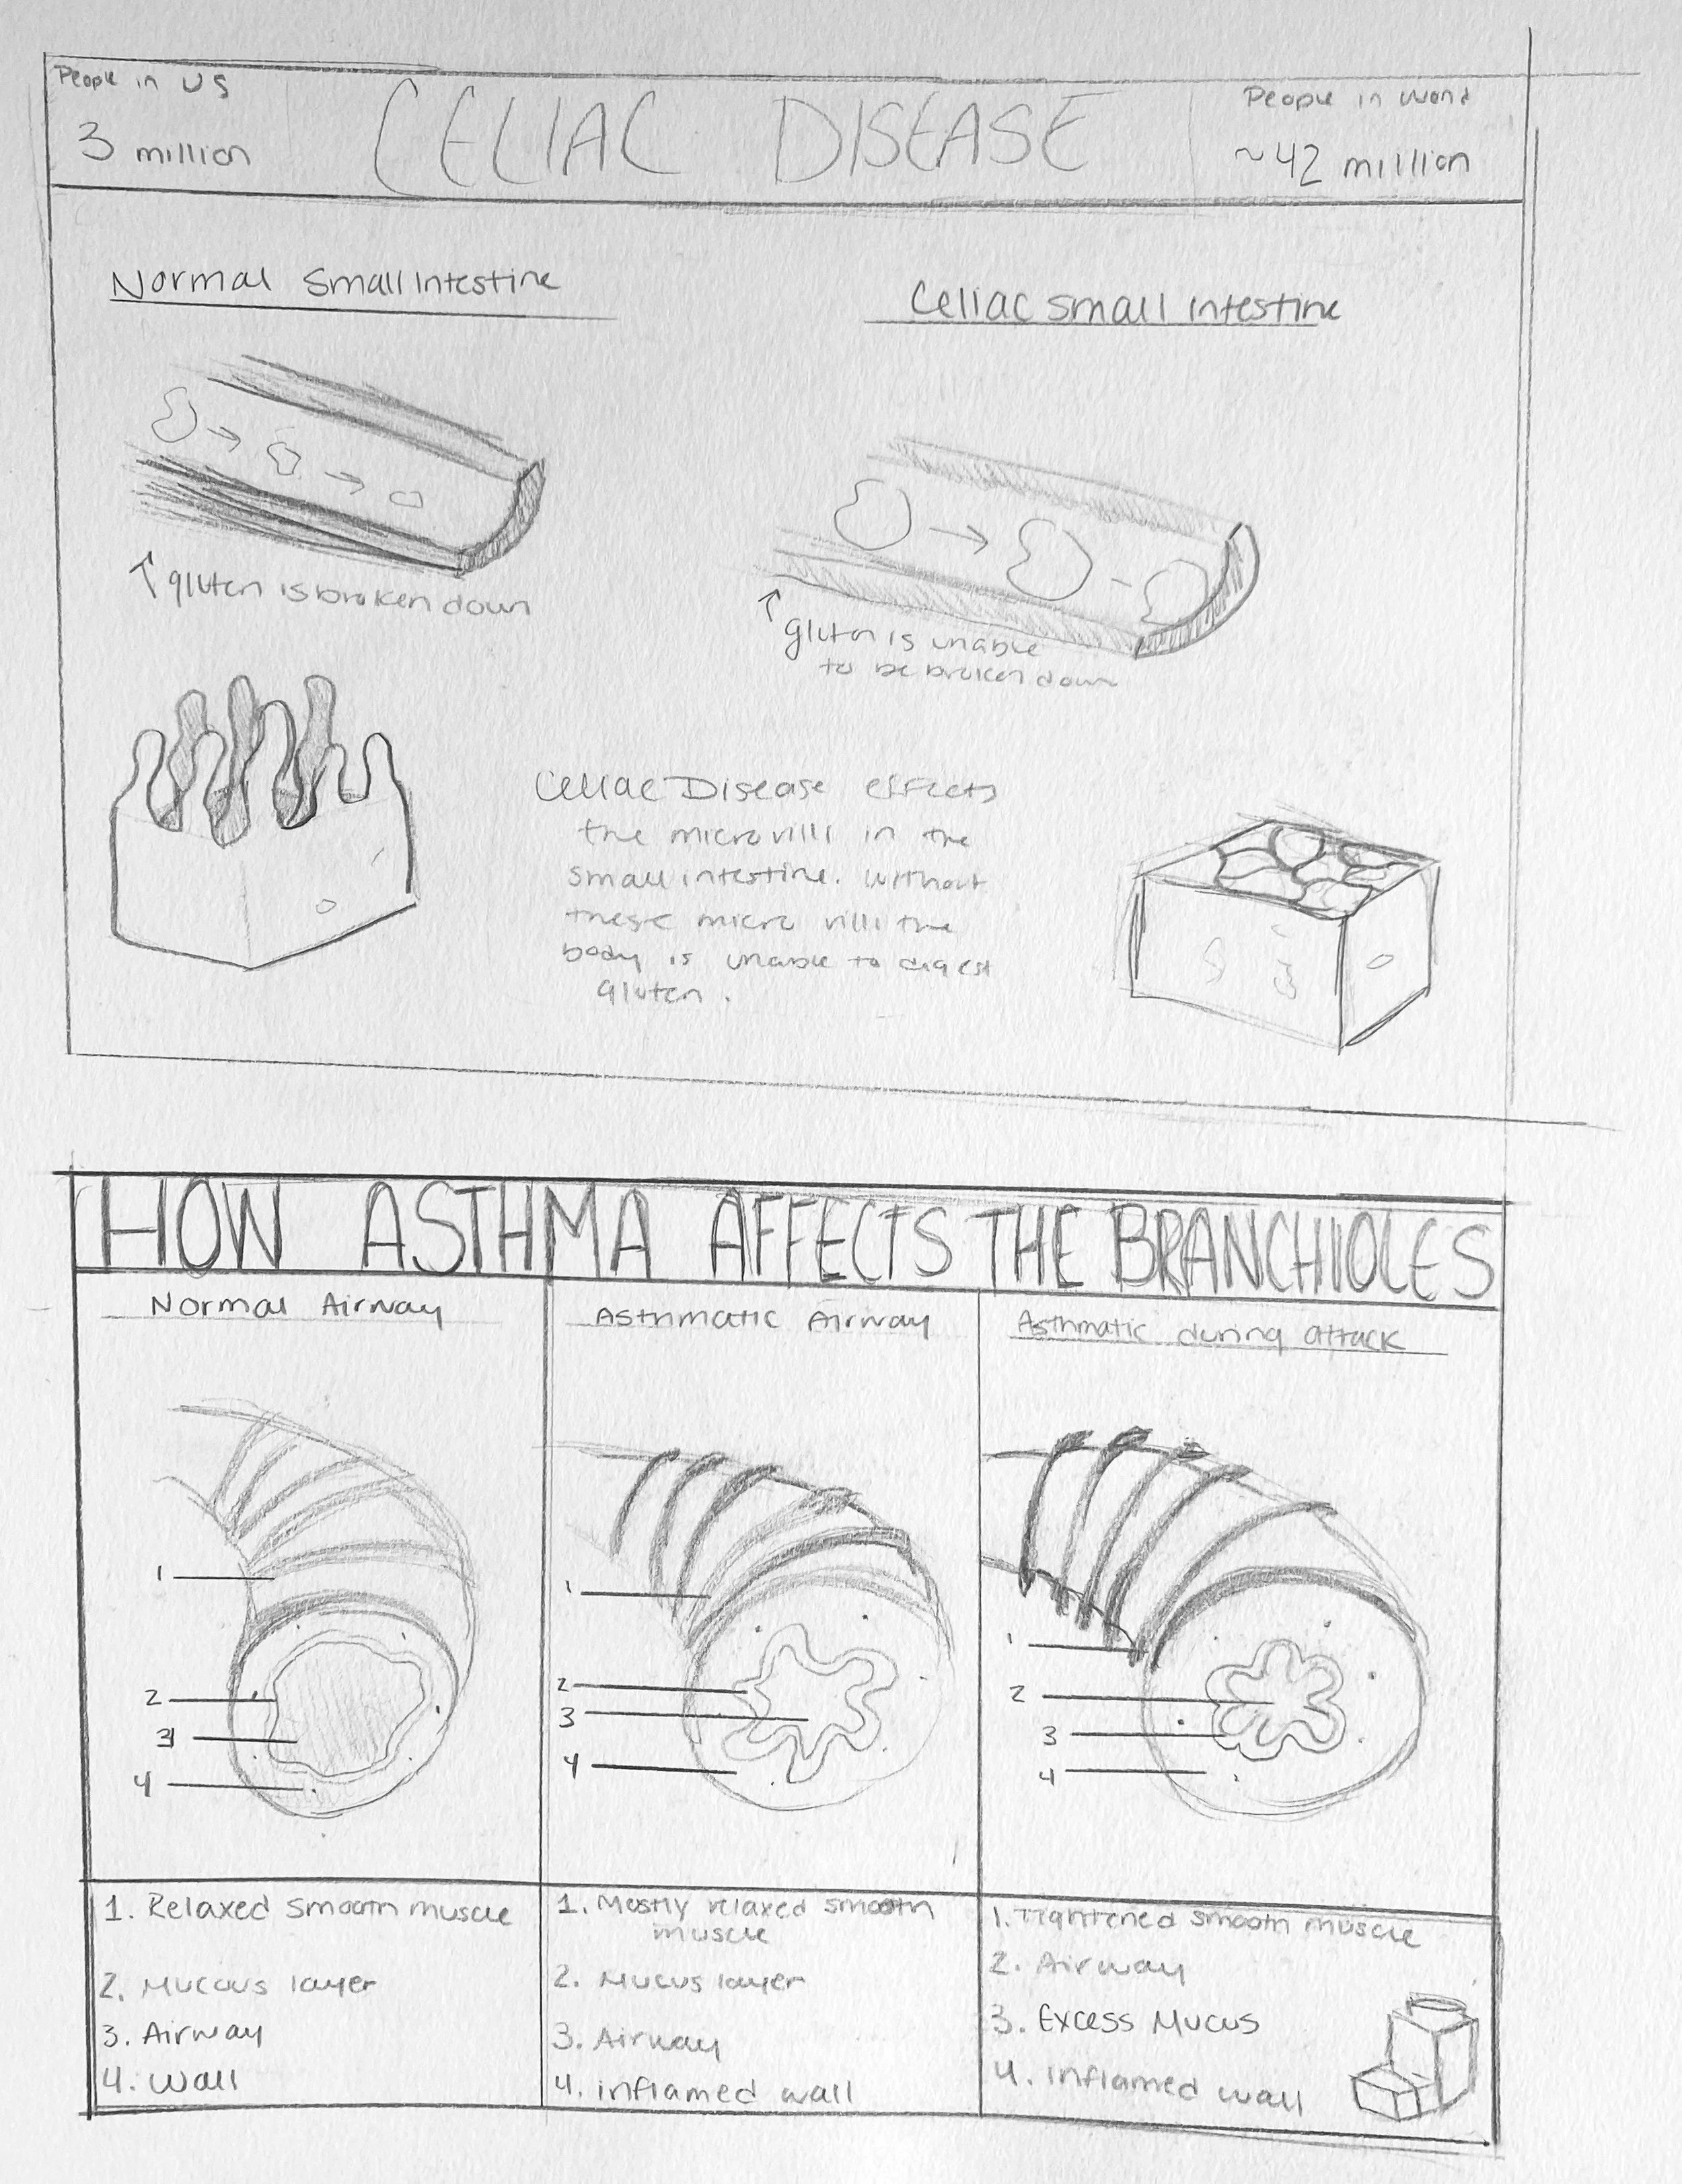 People in US
3 million
CELIAC DISEASE
People in World
~42 million
Normal Small Intestine
Celiac Small Intestine
gluten is broken down
gluten is unable
to be broken down
Celiac Disease effects
the microvilli in the
small intestine. Without
these micro villi the
body is unable to digest
gluten.
HOW ASTHMA AFFECTS THE BRANCHIOLES
Normal Airway
Asthmatic Airway
Asthmatic during attack
1
2
3
4
1
2
3
4
1
2
3
4
1. Relaxed smooth muscle
2. Mucous layer
3. Airway
4. Wall
1. Mostly relaxed smooth
muscle
2. Mucus layer
3. Airway
4. inflamed wall
1. Tightened smooth muscle
2. Airway
3. Excess Mucus
4. Inflamed wall